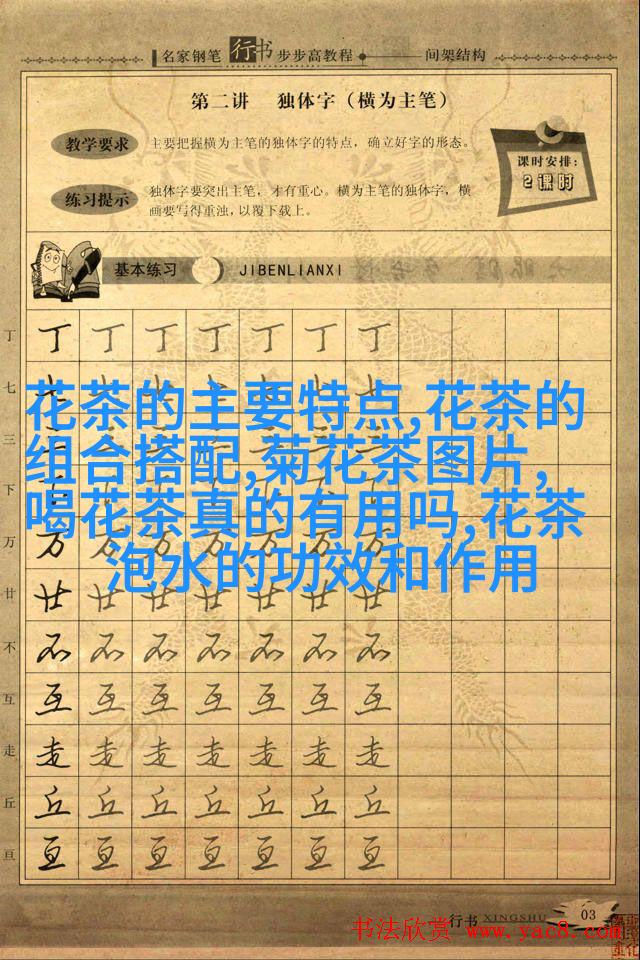 名家钢笔 行书 步步高教程 间架结构
第二讲 独体字（横为主笔）
教学要求 主要把握横为主笔的独体字的特点，确立好字的形态。
课时安排：
2课时
练习提示 独体字要突出主笔，才有重心。横为主笔的独体字，横
画要写得重浊，以覆下载上。
基本练习 JIBENLIANXI
丁 丁 丁 丁 丁 丁 丁 丁
七
花茶的主要特点,花茶的
三
组合搭配,菊花茶图片,
下
喝花茶真的有用吗,花茶
万 万 万 万 万 万 万 万
泡水的功效和作用
廿 廿 廿 廿 廿 廿 廿 廿
不 不 不 不 不 不 不 不
互 互 互 互 互 互 互 互
走 走 走 走 走 走 走 走
丘 丘 丘 丘 丘 丘 丘 丘
亘 亘 亘 亘 亘 亘 亘 亘
行书 XINGSHU 03
书法欣赏 www.yac8.com